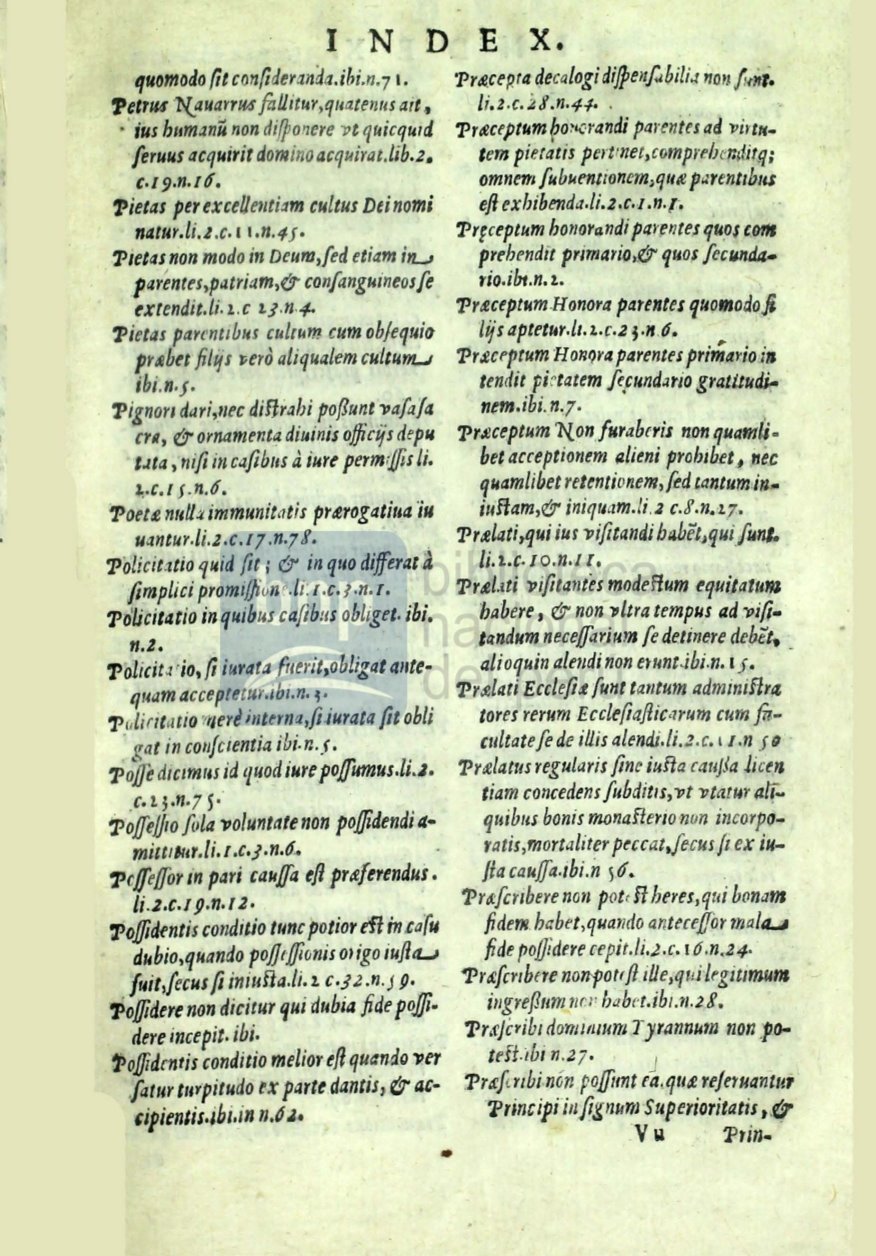 INDEX.
quomodo sit consideranda.ibi.n.71.
Petrus Nauarrus fallitur,quatenus ait,
ius humanũ non disponere vt quicquid
seruus acquirit domino acquirat.lib.2.
c.19.n.16.
Pietas per excellentiam cultus Dei nomi
natur.li.2.c.11.n.45.
Pietas non modo in Deum,sed etiam in
parentes,patriam,& consanguineos se
extendit.li.2.c 23.n.4.
Pietas parentibus cultum cum obsequio
præbet filijs verò aliqualem cultum
ibi.n.5.
Pignori dari,nec distrahi possunt vasa sa
cra, & ornamenta diuinis officijs depu
tata, nisi in casibus à iure permissis li.
2.c.15.n.6.
Poetæ nulla immunitatis prærogatiua iu
uantur.li.2.c.17.n.78.
Policitatio quid sit; & in quo differat à
simplici promissione.li.1.c.3.n.1.
Policitatio in quibus casibus obliget. ibi.
n.2.
Policitatio, si iurata fuerit,obligat ante-
quam acceptetur.ibi.n.3.
Policitatio merè interna,si iurata sit obli
gat in conscientia ibi.n.5.
Posse dicimus id quod iure possumus.li.2.
c.23.n.75.
Possessio sola voluntate non possidendi a-
mittitur.li.1.c.3.n.6.
Possessor in pari caussa est præferendus.
li.2.c.19.n.12.
Possidentis conditio tunc potior est in casu
dubio,quando possessionis origo iusta
fuit,secus si iniusta.li.2 c.32.n.59.
Possidere non dicitur qui dubia fide possi-
dere incepit. ibi.
Possidentis conditio melior est quando ver
satur turpitudo ex parte dantis, & ac-
cipientis.ibi.in n.62.
Præcepta decalogi dispensabilia non sunt.
li.2.c.28.n.44.
Præceptum honorandi parentes ad virtu-
tem pietatis pertinet,comprehenditq;
omnem subuentionem,quæ parentibus
est exhibenda.li.2.c.1.n.1.
Pręceptum honorandi parentes quos com
prehendit primario,& quos secunda-
rio.ibi.n.2.
Præceptum Honora parentes quomodo fi
lijs aptetur.li.2.c.23.n 6.
Præceptum Honora parentes primario in
tendit pietatem secundario gratitudi-
nem.ibi.n.7.
Præceptum Non furaberis non quamli-
bet acceptionem alieni prohibet, nec
quamlibet retentionem,sed tantum in-
iustam,& iniquam.li.2 c.8.n.27.
Prælati,qui ius visitandi habẽt,qui sunt.
li.2.c.10.n.11.
Prælati visitantes modestum equitatum
habere, & non vltra tempus ad visi-
tandum necessarium se detinere debẽt,
alioquin alendi non erunt.ibi.n.15.
Prælati Ecclesiæ sunt tantum administra
tores rerum Ecclesiasticarum cum fa-
cultate se de illis alendi.li.2.c.11.n 50
Prælatus regularis sine iusta caussa licen
tiam concedens subditis,vt vtatur ali-
quibus bonis monasterio non incorpo-
ratis,mortaliter peccat,secus si ex iu-
sta caussa.ibi.n 56.
Præscribere non potest heres,qui bonam
fidem habet,quando antecessor mala
fide possidere cepit.li.2.c.16.n.24.
Præscribere non potest ille,qui legitimum
ingressum non habet.ibi.n.28.
Præscribi dominium Tyrannum non po-
test.ibi n.27.
Præscribi non possunt ea.quæ reseruantur
Principi in signum Superioritatis, &
Vu Prin-